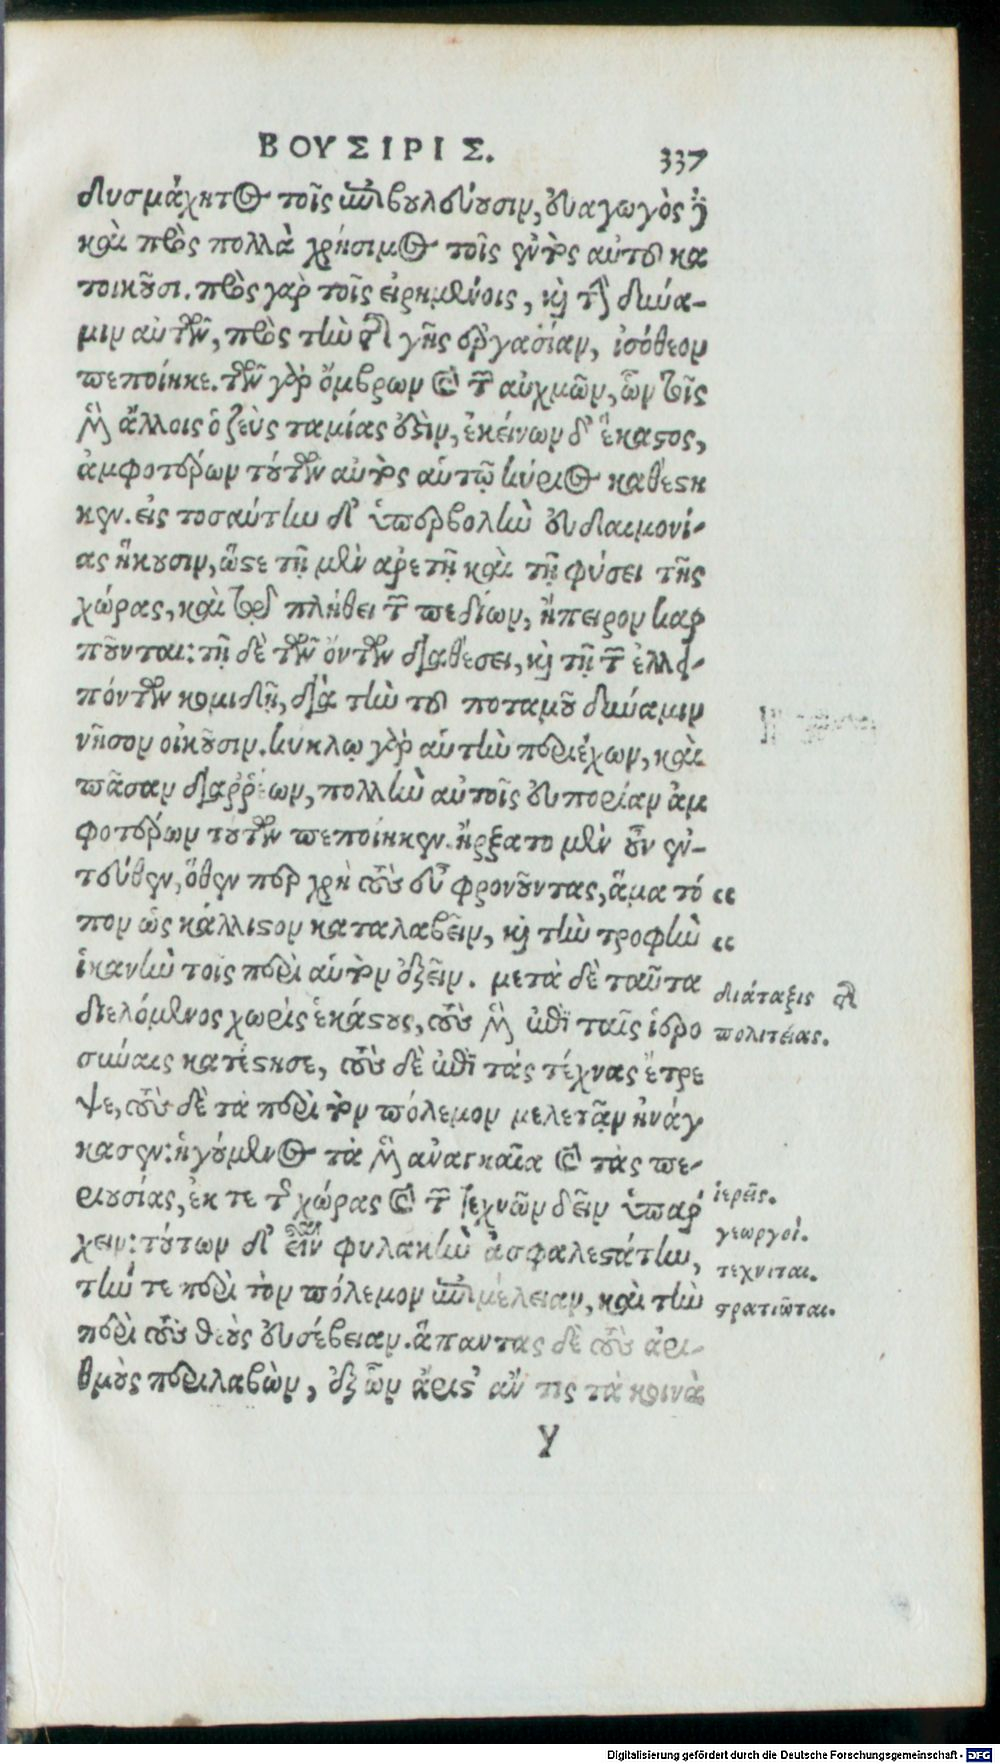 ΒΟΥΣΙΡΙΣ. 337
δυσμάχητος τοῖς ἐπιβουλεύουσιν, εὐαγωγὸς δὲ
καὶ πρὸς πολλὰ χρήσιμος τοῖς ἐντὸς αὐτοῦ κα
τοικοῦσι. πρὸς γὰρ τοῖς εἰρημένοις, καὶ τὴν δύνα-
μιν αὐτῶν, πρὸς τὴν τῆς γῆς ἐργασίαν, ἰσόθεον
πεποίηκε. τῶν γὰρ ὄμβρων καὶ τῶν αὐχμῶν, ὧν τοῖς
μὲν ἄλλοις ὁ ζεὺς ταμίας ἐστὶν, ἐκείνων δ' ἕκαστος,
ἀμφοτέρων τούτων αὐτὸς αὑτῷ κύριος καθέστη
κεν. εἰς τοσαύτην δ' ὑπερβολὴν εὐδαιμονί-
ας ἥκουσιν, ὥστε τῇ μὲν ἀρετῇ καὶ τῇ φύσει τῆς
χώρας, καὶ τῷ πλήθει τῶν πεδίων, ἤπειρον καρ
ποῦνται: τῇ δὲ τῶν ὄντων διαθέσει, καὶ τῇ τῶν ἐλλει-
πόντων κομιδῇ, διὰ τὴν τοῦ ποταμοῦ δύναμιν
νῆσον οἰκοῦσιν. κύκλῳ γὰρ αὐτὴν περιέχων, καὶ
πᾶσαν διαῤῥέων, πολλὴν αὐτοῖς εὐπορίαν ἀμ
φοτέρων τούτων πεποίηκεν. ἤρξατο μὲν οὖν ἐν-
τεύθεν, ὅθεν περ χρὴ τοὺς εὖ φρονοῦντας, ἅμα τό “
πον ὡς κάλλιστον καταλαβεῖν, καὶ τὴν τροφὴν “
ἱκανὴν τοῖς περὶ αὑτὸν ἐξεῖν. μετὰ δὲ ταῦτα
διελόμενος χωρὶς ἑκάστους, τοὺς μὲν ἐπὶ ταῖς ἱερο
σύναις κατέστησε, τοὺς δὲ ἐπὶ τάς τέχνας ἔτρε
ψε, τοὺς δὲ τὰ περὶ τὸν πόλεμον μελετᾷν ἠνάγ
κασεν: ἡγούμενος τὰ μὲν ἀναγκαῖα καὶ τὰς πε-
ριουσίας, ἐκ τε τῆς χώρας καὶ τῶν τεχνῶν δεῖν ὑπάρ
χειν: τούτων δ' εἶναι φυλακὴν ἀσφαλεστάτην,
τήν τε περὶ τὸν πόλεμον ἐπιμέλειαν, καὶ τὴν
περὶ τοὺς θεοὺς εὐσέβειαν. ἅπαντας δὲ τοὺς ἀρι-
θμοὺς περιλαβὼν, ἐξ ὧν ἄριστ' ἄν τις τὰ κοινὰ
διάταξις τῆς
πολιτείας.
ἱερεῖς.
γεωργοί.
τεχνιται.
στρατιῶται.
Y
Digitalisierung gefördert durch die Deutsche Forschungsgemeinschaft - DFG